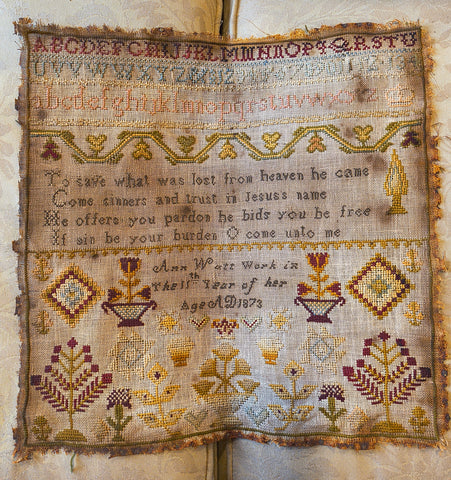 ABCDEFGHIJKLMNOPQRSTU
UVWXYZ
abcdefghiklmnopqrstuvwxyz
To save what was lost from heaven he came
Come sinners and trust in Jesus's name
He offers you pardon he bids you be free
If sin be your burden O come unto me
Ann Watt Work in
the 11th Year of her
Age AD 1873